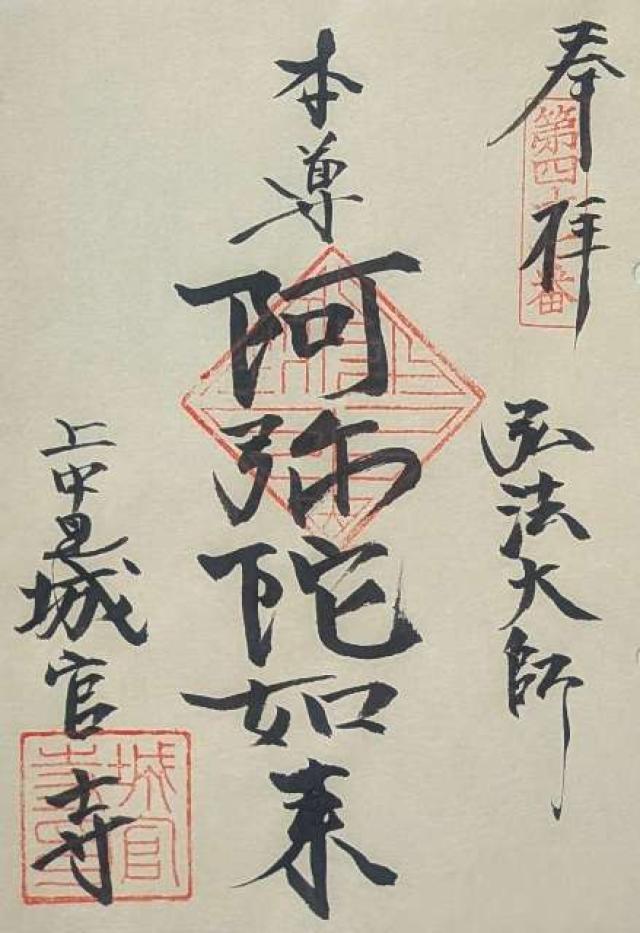 奉拝
第四十番
弘法大師
本尊
阿弥陀如来
上中里城官寺
城官寺印